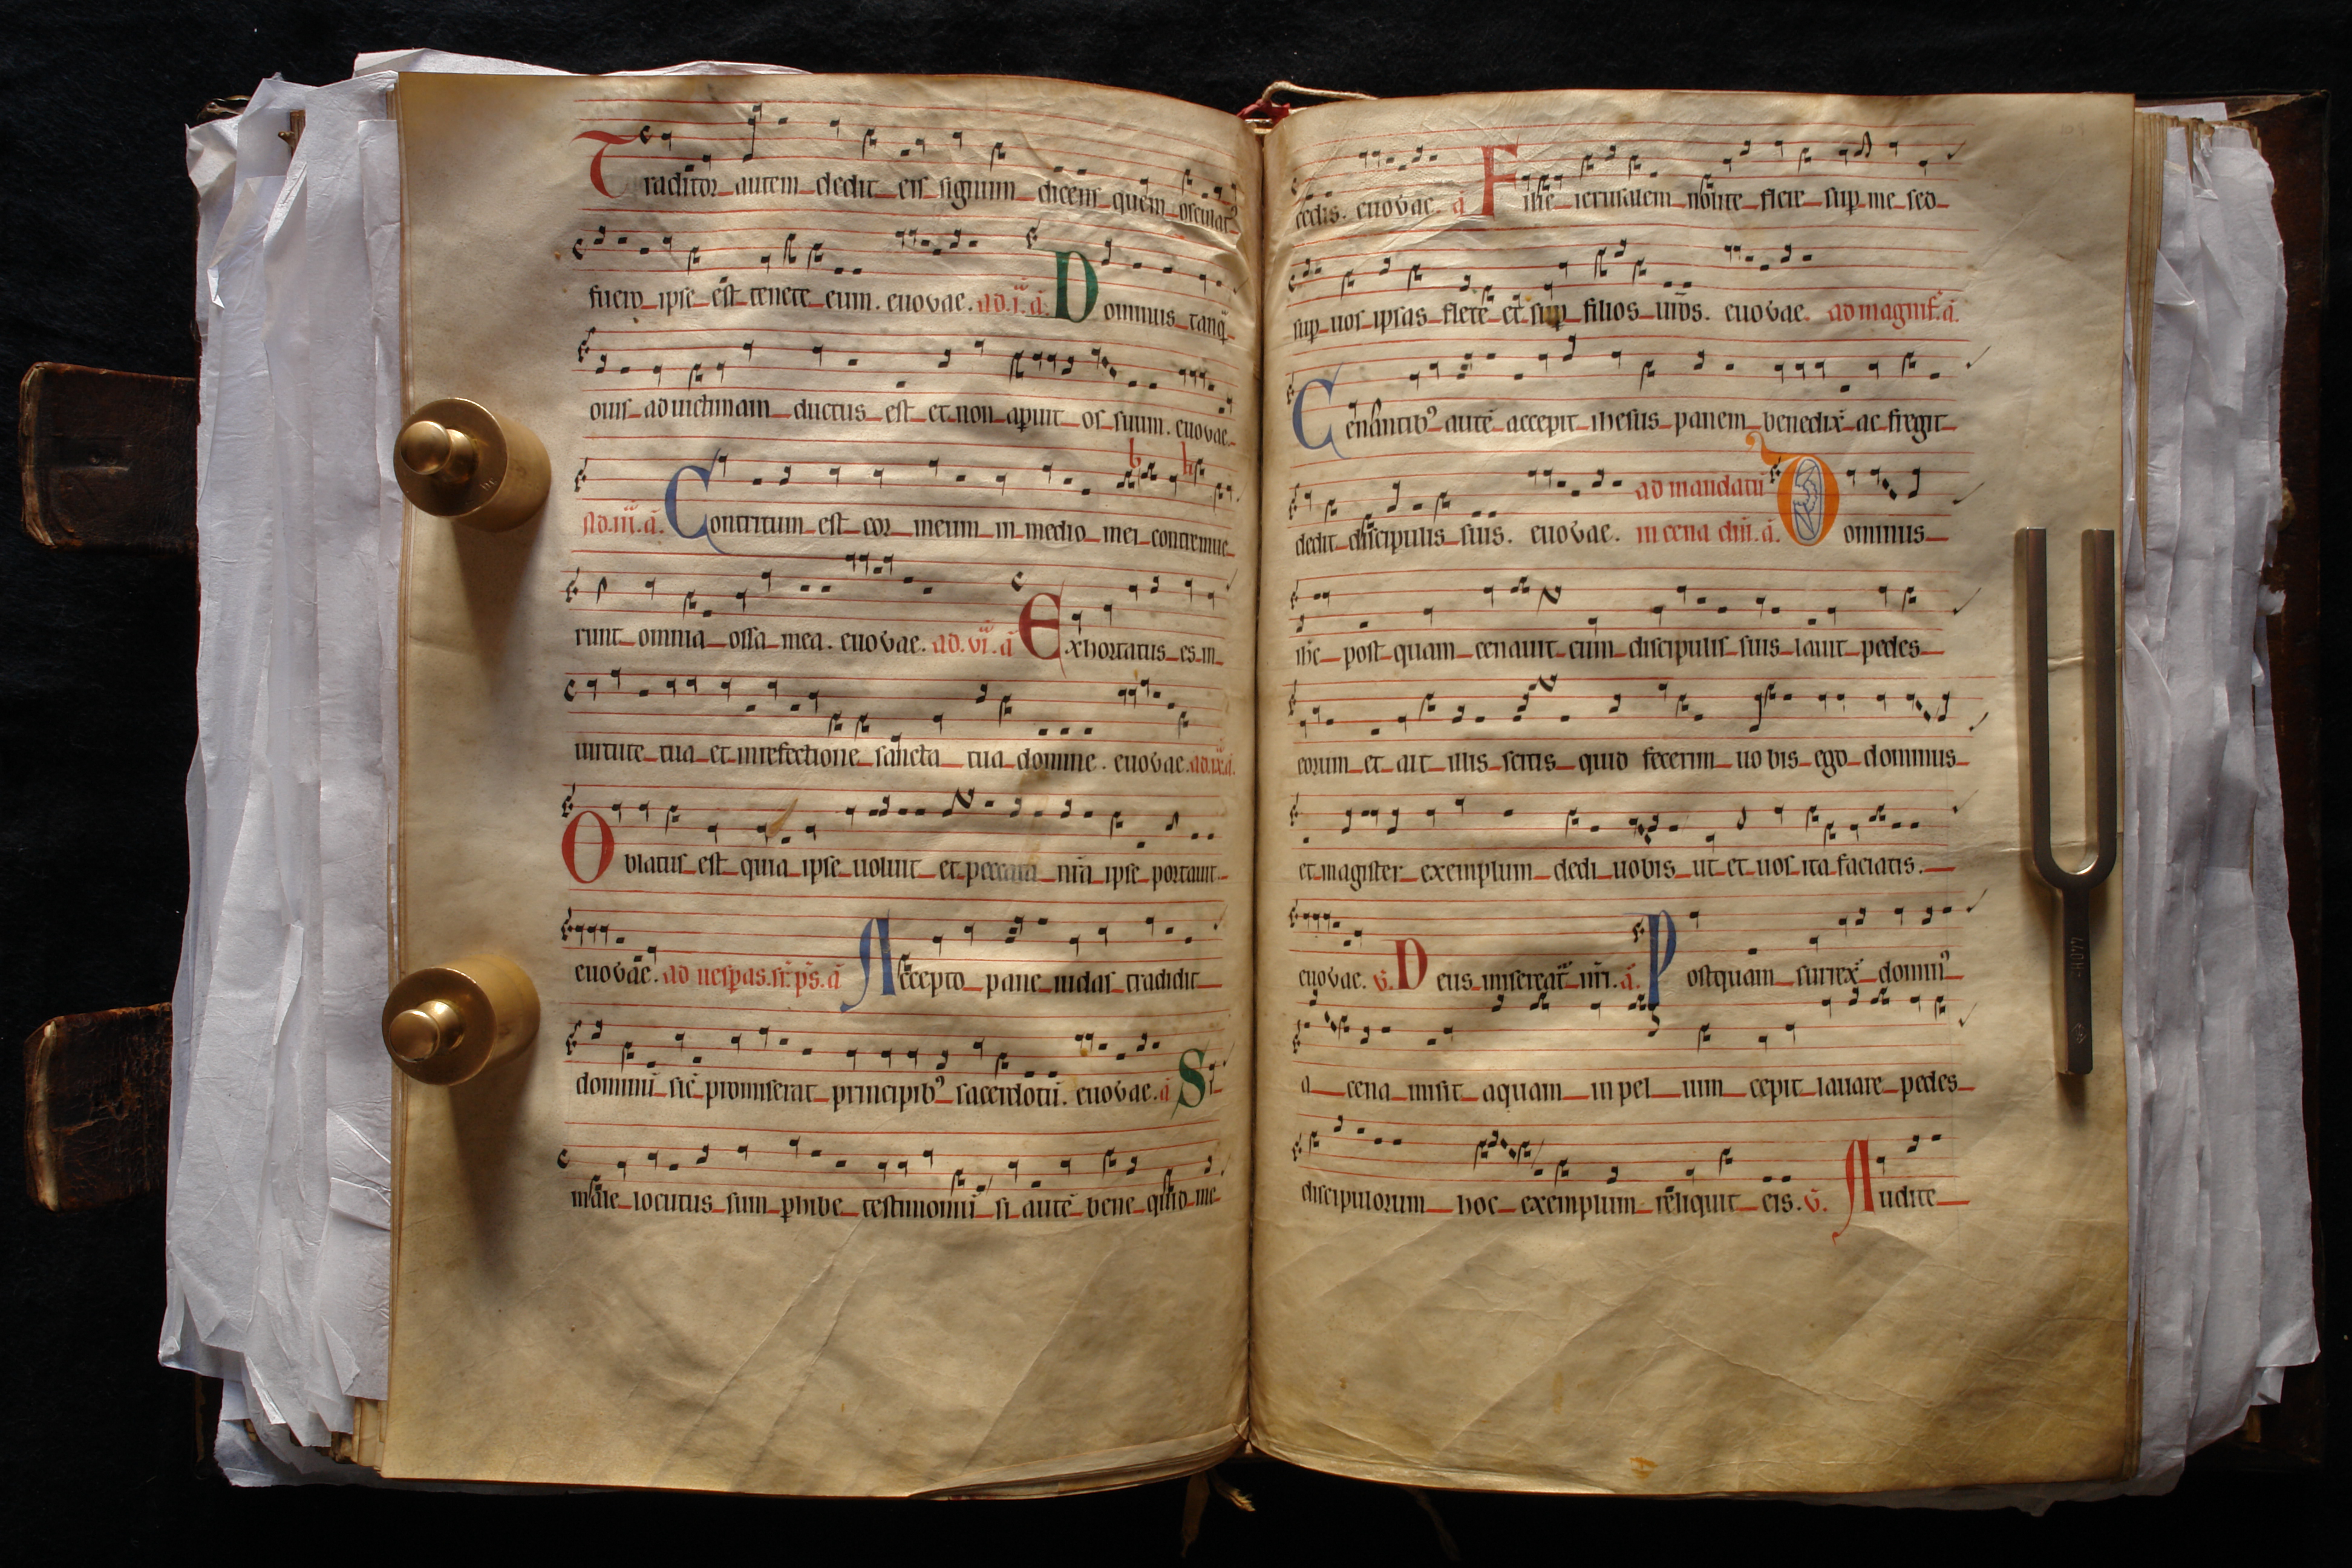 Traditor autem dedit eis signum dicens quem osculat᷒
fuero ipse est tenete eum. euouae. ad .i. a. Dominus tanq̃
ouis ad uictimam ductus est et non aperuit os suum. euouae.
ad .iii. a. Contritum est cor meum in medio mei contremue
runt omnia ossa mea. euouae. ad. vi. a Exhortatus es in
uirtute tua et in refectione sancta tua domine. euouae. ad. ix. a.
Oblatus est quia ipse uoluit et peccata nr̃a ipse portauit.
euouae. ad uesp̃as. sr̃. ps̃. a Accepto pane iudas tradidit
dominũ sic̃ promiserat principib᷒ sacerdotũ. euouae. a Si
male locutus sum p̱hibe testimoniũ si autẽ bene quid me
cedis. euouae. a Filie ierusalem nolite flere sup̱ me sed
sup̱ uos ipsas flete et sup̱ filios ur̃os. euouae. ad magnif. a.
Cenantib᷒ autẽ accepit ihesus panem benedix̃ ac fregit
dedit discipulis suis. euouae. ad mandatũ in cena dñi. a. Dominus
ihc post quam cenauit cum discipulis suis lauit pedes
eorum et ait illis scitis quid fecerim uobis ego dominus
et magister exemplum dedi uobis ut et uos ita faciatis.
euouae. v̄. Deus misereat᷒ nr̃i. a. Postquam surrex̃ domin᷒
a cena misit aquam in peluim cepit lauare pedes
discipulorum hoc exemplum reliquit eis. v̄. Audite